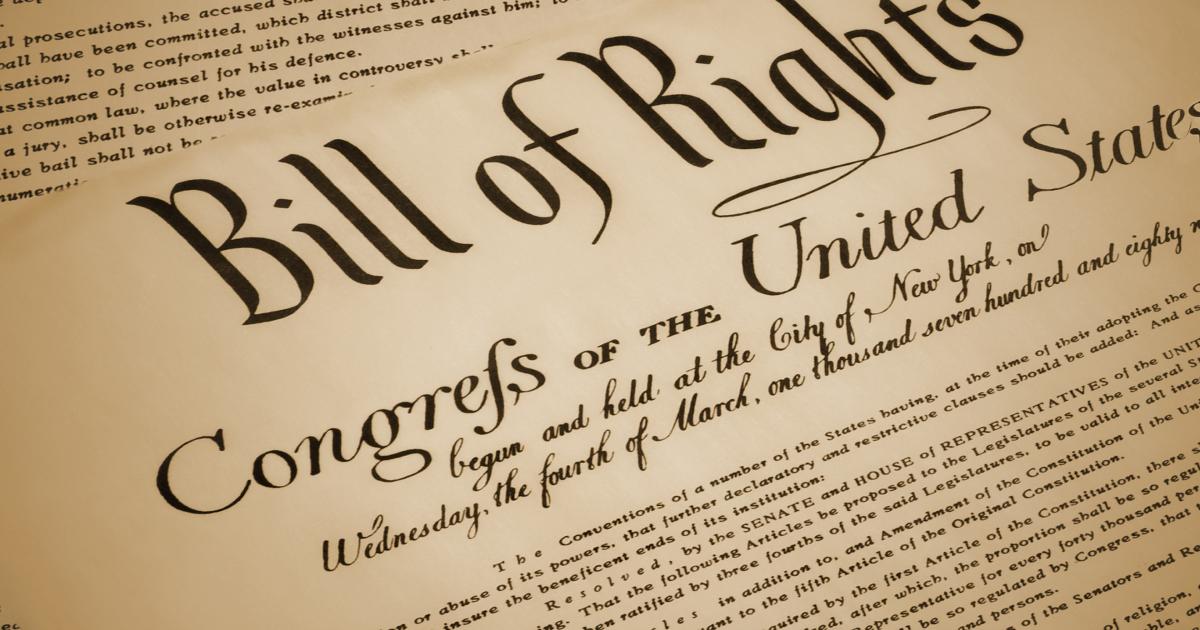 al prosecutions, the accused
have been committed, which district shall
sation; to be confronted with the witnesses against him; to
assistance of counsel for his defence.
at common law, where the value in controversy
a jury, shall be otherwise re-exami
ive bail shall not be
numerati
Bill of Rights
Congreſs OF THE United States
begun and held at the City of New York, on
Wednesday, the fourth of March, one thousand seven hundred and eighty n
The Conventions of a number of the States having, at the time of their adopting the C
on or abuse of its powers, that further declaratory and restrictive clauses should be added: And as
insure the beneficent ends of its institution:
Resolved, by the SENATE and HOUSE of REPRESENTATIVES of the UNIT
ing. That the following Articles be proposed to the Legislatures of the several S
hen ratified by three fourths of the said Legislatures, to be valid to all inte
les in addition to, and Amendment of the Constitution of the Uni
ant to the fifth Article of the Original Constitution.
quired by the first Article of the Constitution, there s
red, after which, the proportion shall be so regul
Representative for every forty thousand per
l be so regulated by Congress, that t
and persons.
s of the Senators and Re
of religion,